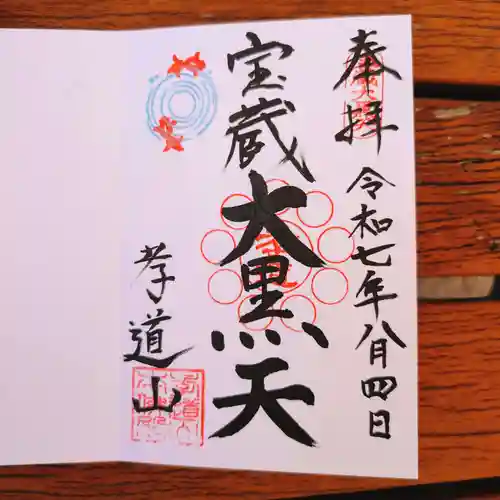 奉拝
令和七年八月四日
宝蔵
大黒天
孝道山